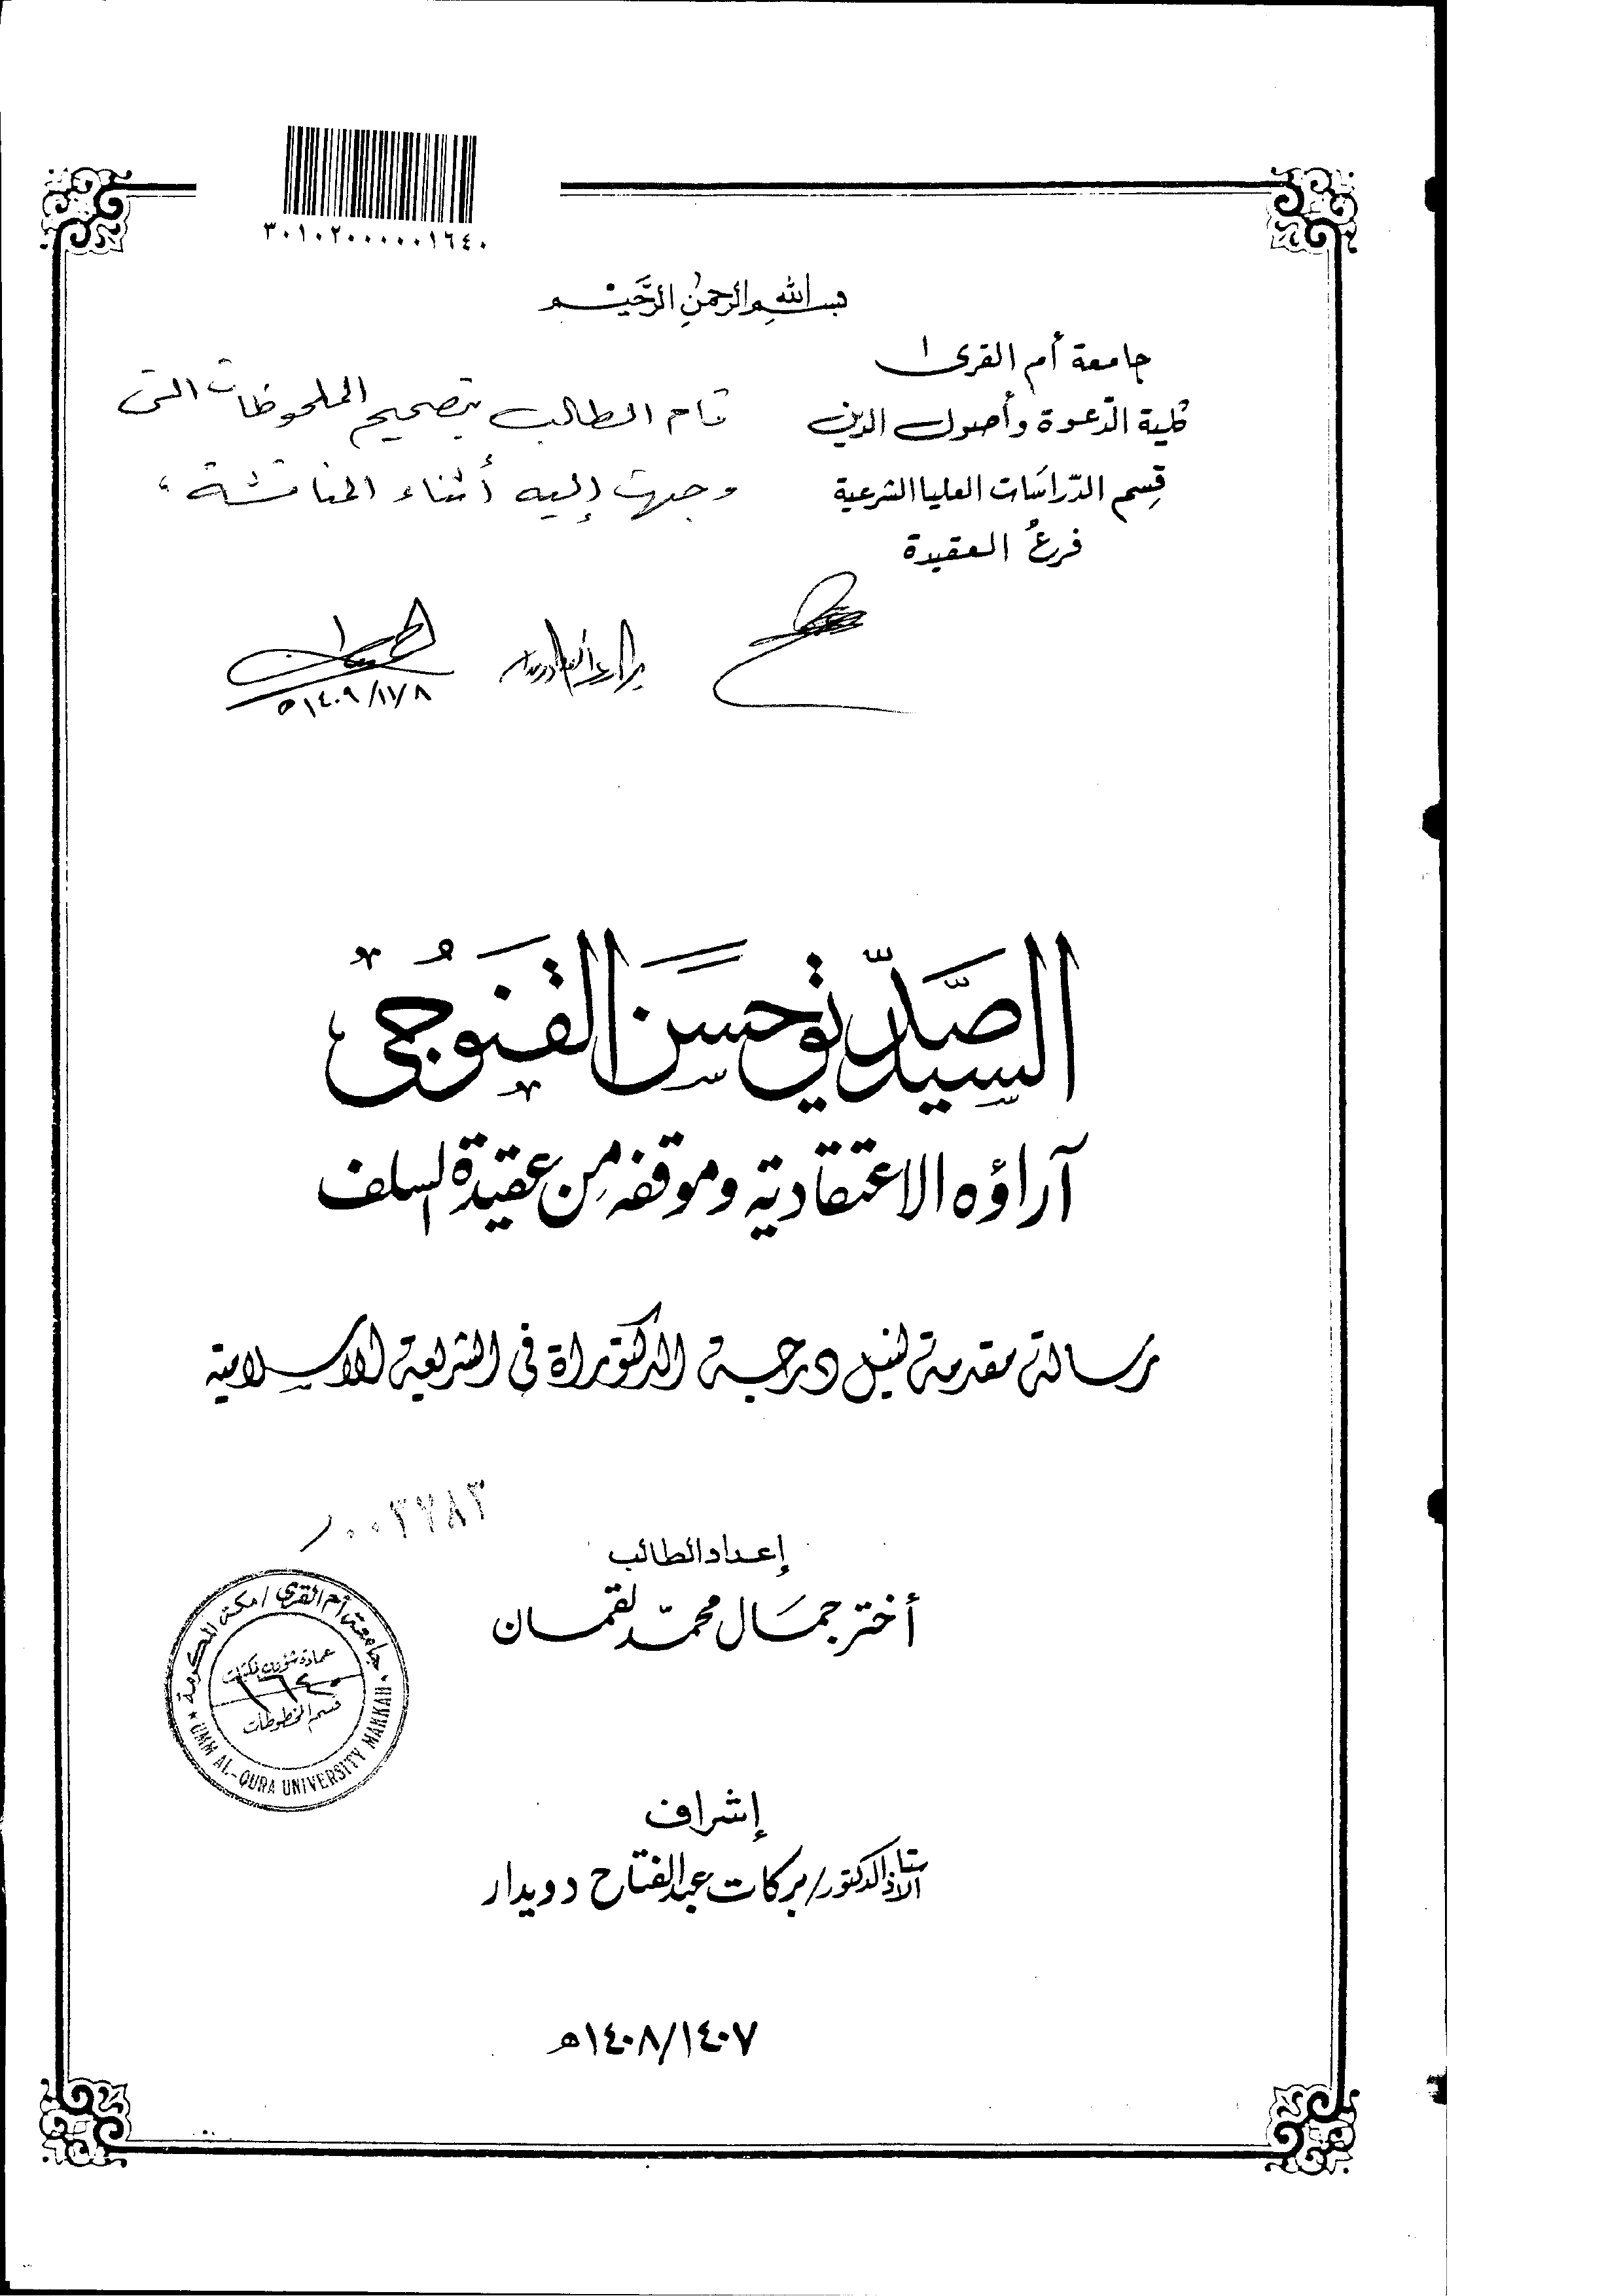 ٣٠١٠٢٠٠٠٠٠١٦٤٠
بسم الله الرحمن الرحيم
جامعة أم القرى
كلية الدّعوة وأصول الدين
قسم الدّراسَات العليا الشرعية
فرع العقيدة
قام الطالب بتصحيح الملحوظات التى
وجهت إليه أثناء المناقشة ،
١٤٠٩/١١/٨ ه
السيد صدّيق حسَن القنوجى
آراؤه الاعتقادية وموقفه مِن عقيدة السلف
رسالة مقدمة لنيل درجة الدكتوراة فى الشريعة الإسلامية
٠٠٣٧٨٣
إعداد الطالب
أختر جمَال محمّد لقمان
جامعة أم القرى / مكة المكرمة
عمادة شؤون المكتبات
١٦٤٠
قسم المخطوطات
* UMM AL-QURA UNIVERSITY MAKKAH *
إشراف
الاستاذ الدكتور / بركات عبدالفتاح دويدار
١٤٠٨/١٤٠٧ه